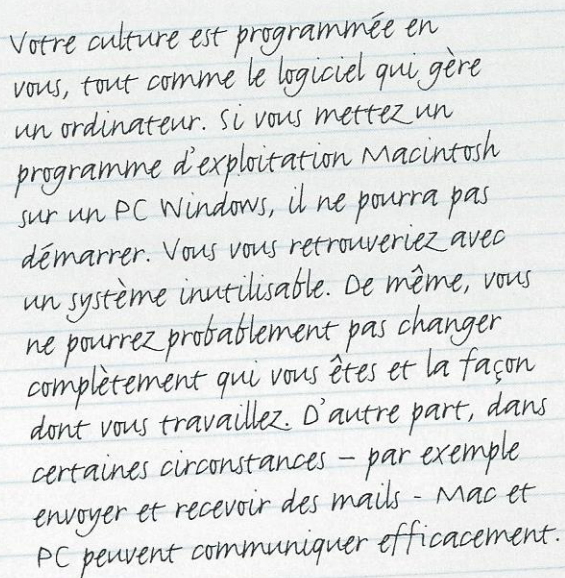 Votre culture est programmée en
vous, tout comme le logiciel qui gère
un ordinateur. Si vous mettez un
programme d'exploitation Macintosh
sur un PC Windows, il ne pourra pas
démarrer. Vous vous retrouveriez avec
un système inutilisable. De même, vous
ne pourrez probablement pas changer
complètement qui vous êtes et la façon
dont vous travaillez. D'autre part, dans
certaines circonstances – par exemple
envoyer et recevoir des mails - Mac et
PC peuvent communiquer efficacement.